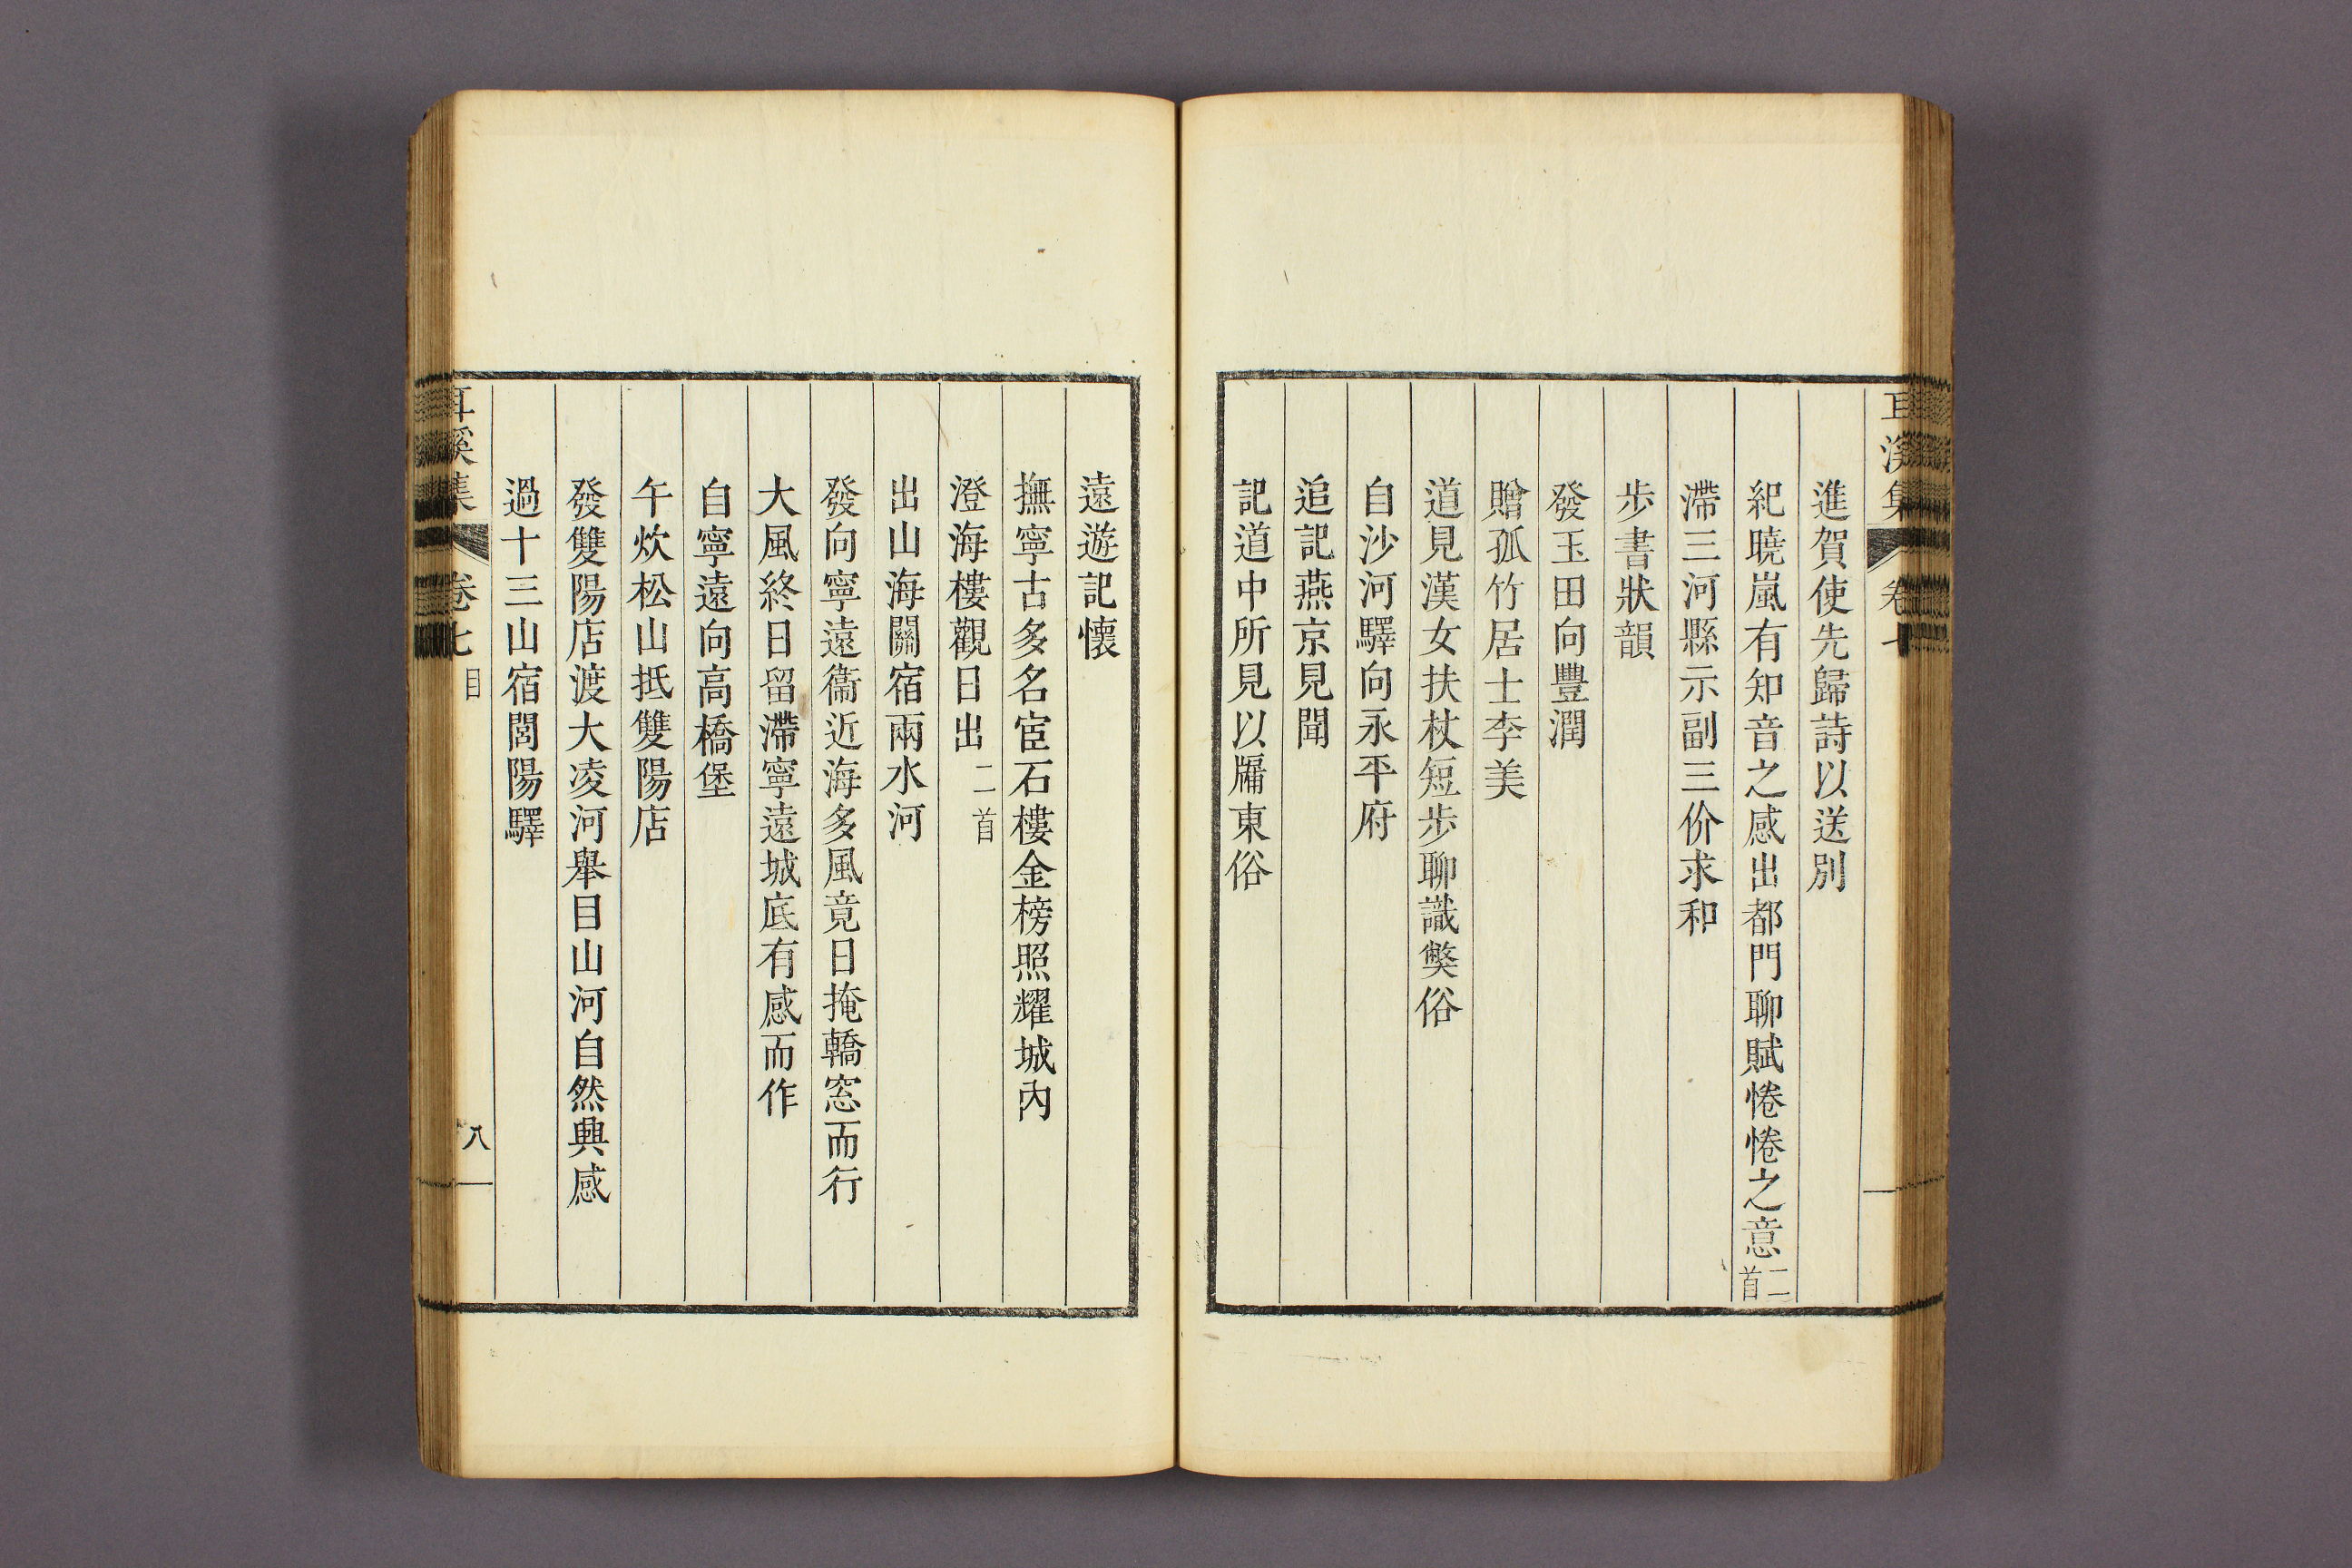 耳溪集
卷七
進賀使先歸詩以送別
紀曉嵐有知音之感出都門聊賦惓惓之意二首
滯三河縣示副三价求和
步書狀韻
發玉田向豐潤
贈孤竹居士李美
道見漢女扶杖短步聊識獘俗
自沙河驛向永平府
追記燕京見聞
記道中所見以牖東俗
遠遊記懷
撫寧古多名宦石樓金榜照耀城內
澄海樓觀日出二首
出山海關宿兩水河
發向寧遠衞近海多風竟日掩轎窓而行
大風終日留滯寧遠城底有感而作
自寧遠向高橋堡
午炊松山抵雙陽店
發雙陽店渡大凌河舉目山河自然興感
過十三山宿閭陽驛
耳溪集
卷七
目
八